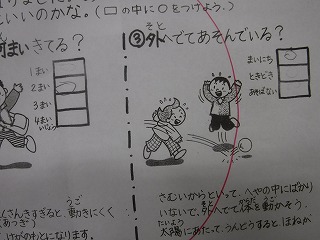 いいのかな。(□の中に○をつけよう。)
まいきてる?
1まい
2まい
3まい
4まい
いじょう
さんきすぎると、動きにくく
うご
(あつぎ)
けがのもとになります。
③外へでてあそんでいる?
そと
まいにち
ときどき
あそばない
さむいからといって、へやの中にばかり
いないで、外へでて体を動かそう。
太陽にあたって、うんどうするとほねが
たいよう